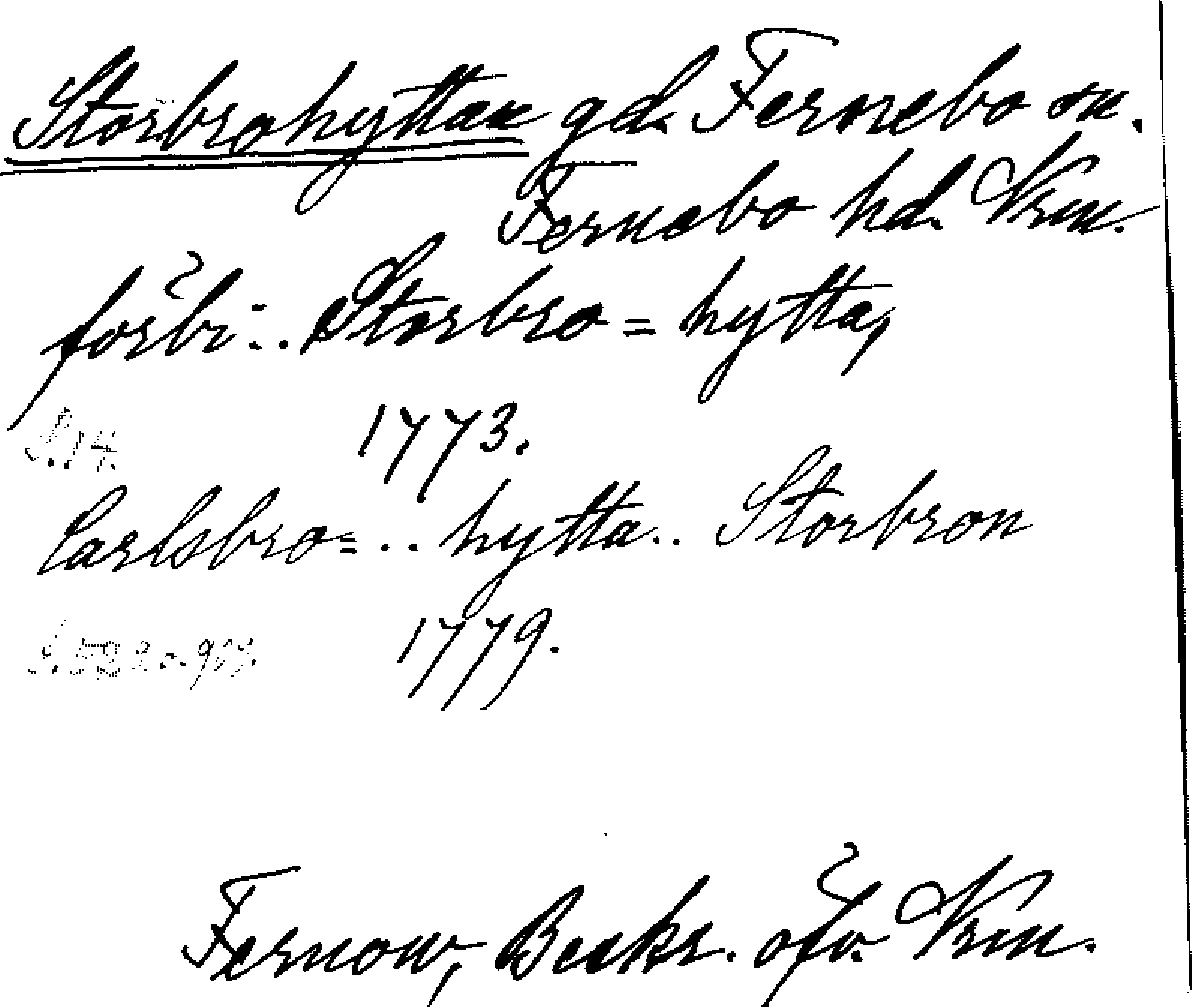 Storbrohyttan gd. Fernebo sn.
Fernebo hd. Vrm.
förbi .. Storbro = hytta,
S. 14. 1773.
Carlsbro= .. hytta .. Storbron
1779.
Fernow, Beskr. öfv. Vrm.